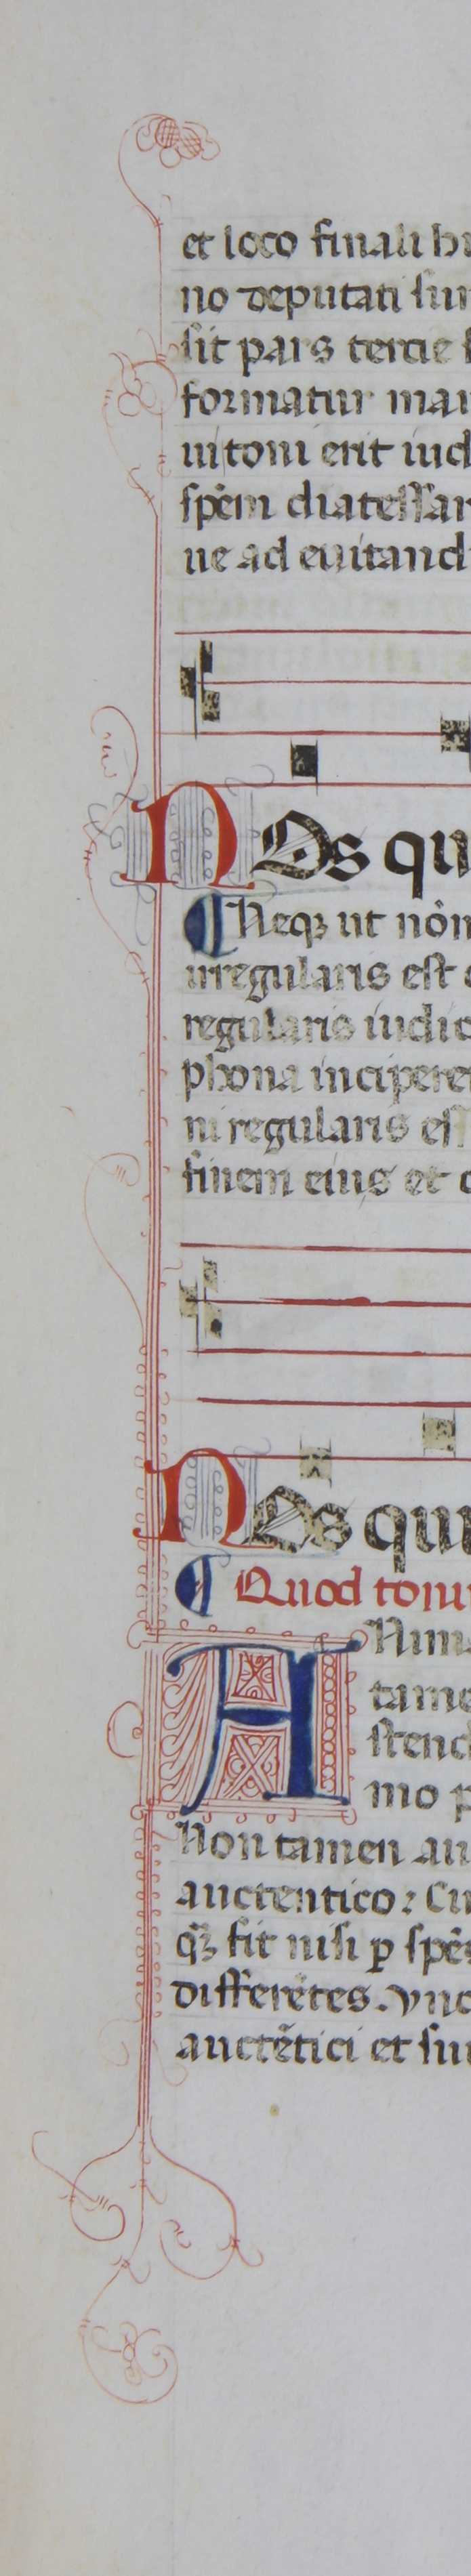 et loco finali
no deputati
sit pars tercie
formatur
uitoni erit iud
spẽm diatessar
ue ad euitand
NOs qu
¶ Neqꝫ ut nõm
irregularis est
regularis iudic
phona incipere
ni regularis es
finem eius et
NOs qui
¶ Quod toni
ANima
tame
stend
mo p
Non tamen au
auctentico: Cu
qꝫ fit nisi ꝑ spẽ
differẽtes. ynd
auctẽtici et